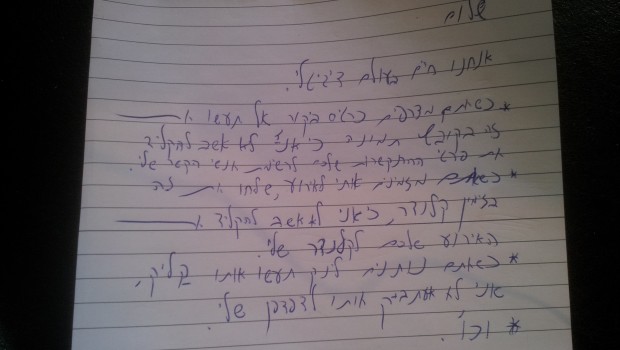 שלום
אנחנו חיים בעולם דיגיטלי.
* כשאתם מצרפים כרטיס ביקור אל תעשו את
זה בקובץ תמונה כי אני לא אשב להקליד
את פרטי ההתקשרות שלכם לרשימת אנשי הקשר שלי.
* כשאתם מזמינים אותי לאירוע, שלחו את זה
בזימון קלנדר, כי אני לא אשב להקליד את
האירוע שלכם לקלנדר שלי.
* כשאתם נותנים לינק תעשו אותו קליק,
אני לא אעתיק אותו לדפדפן שלי.
* וכו'.